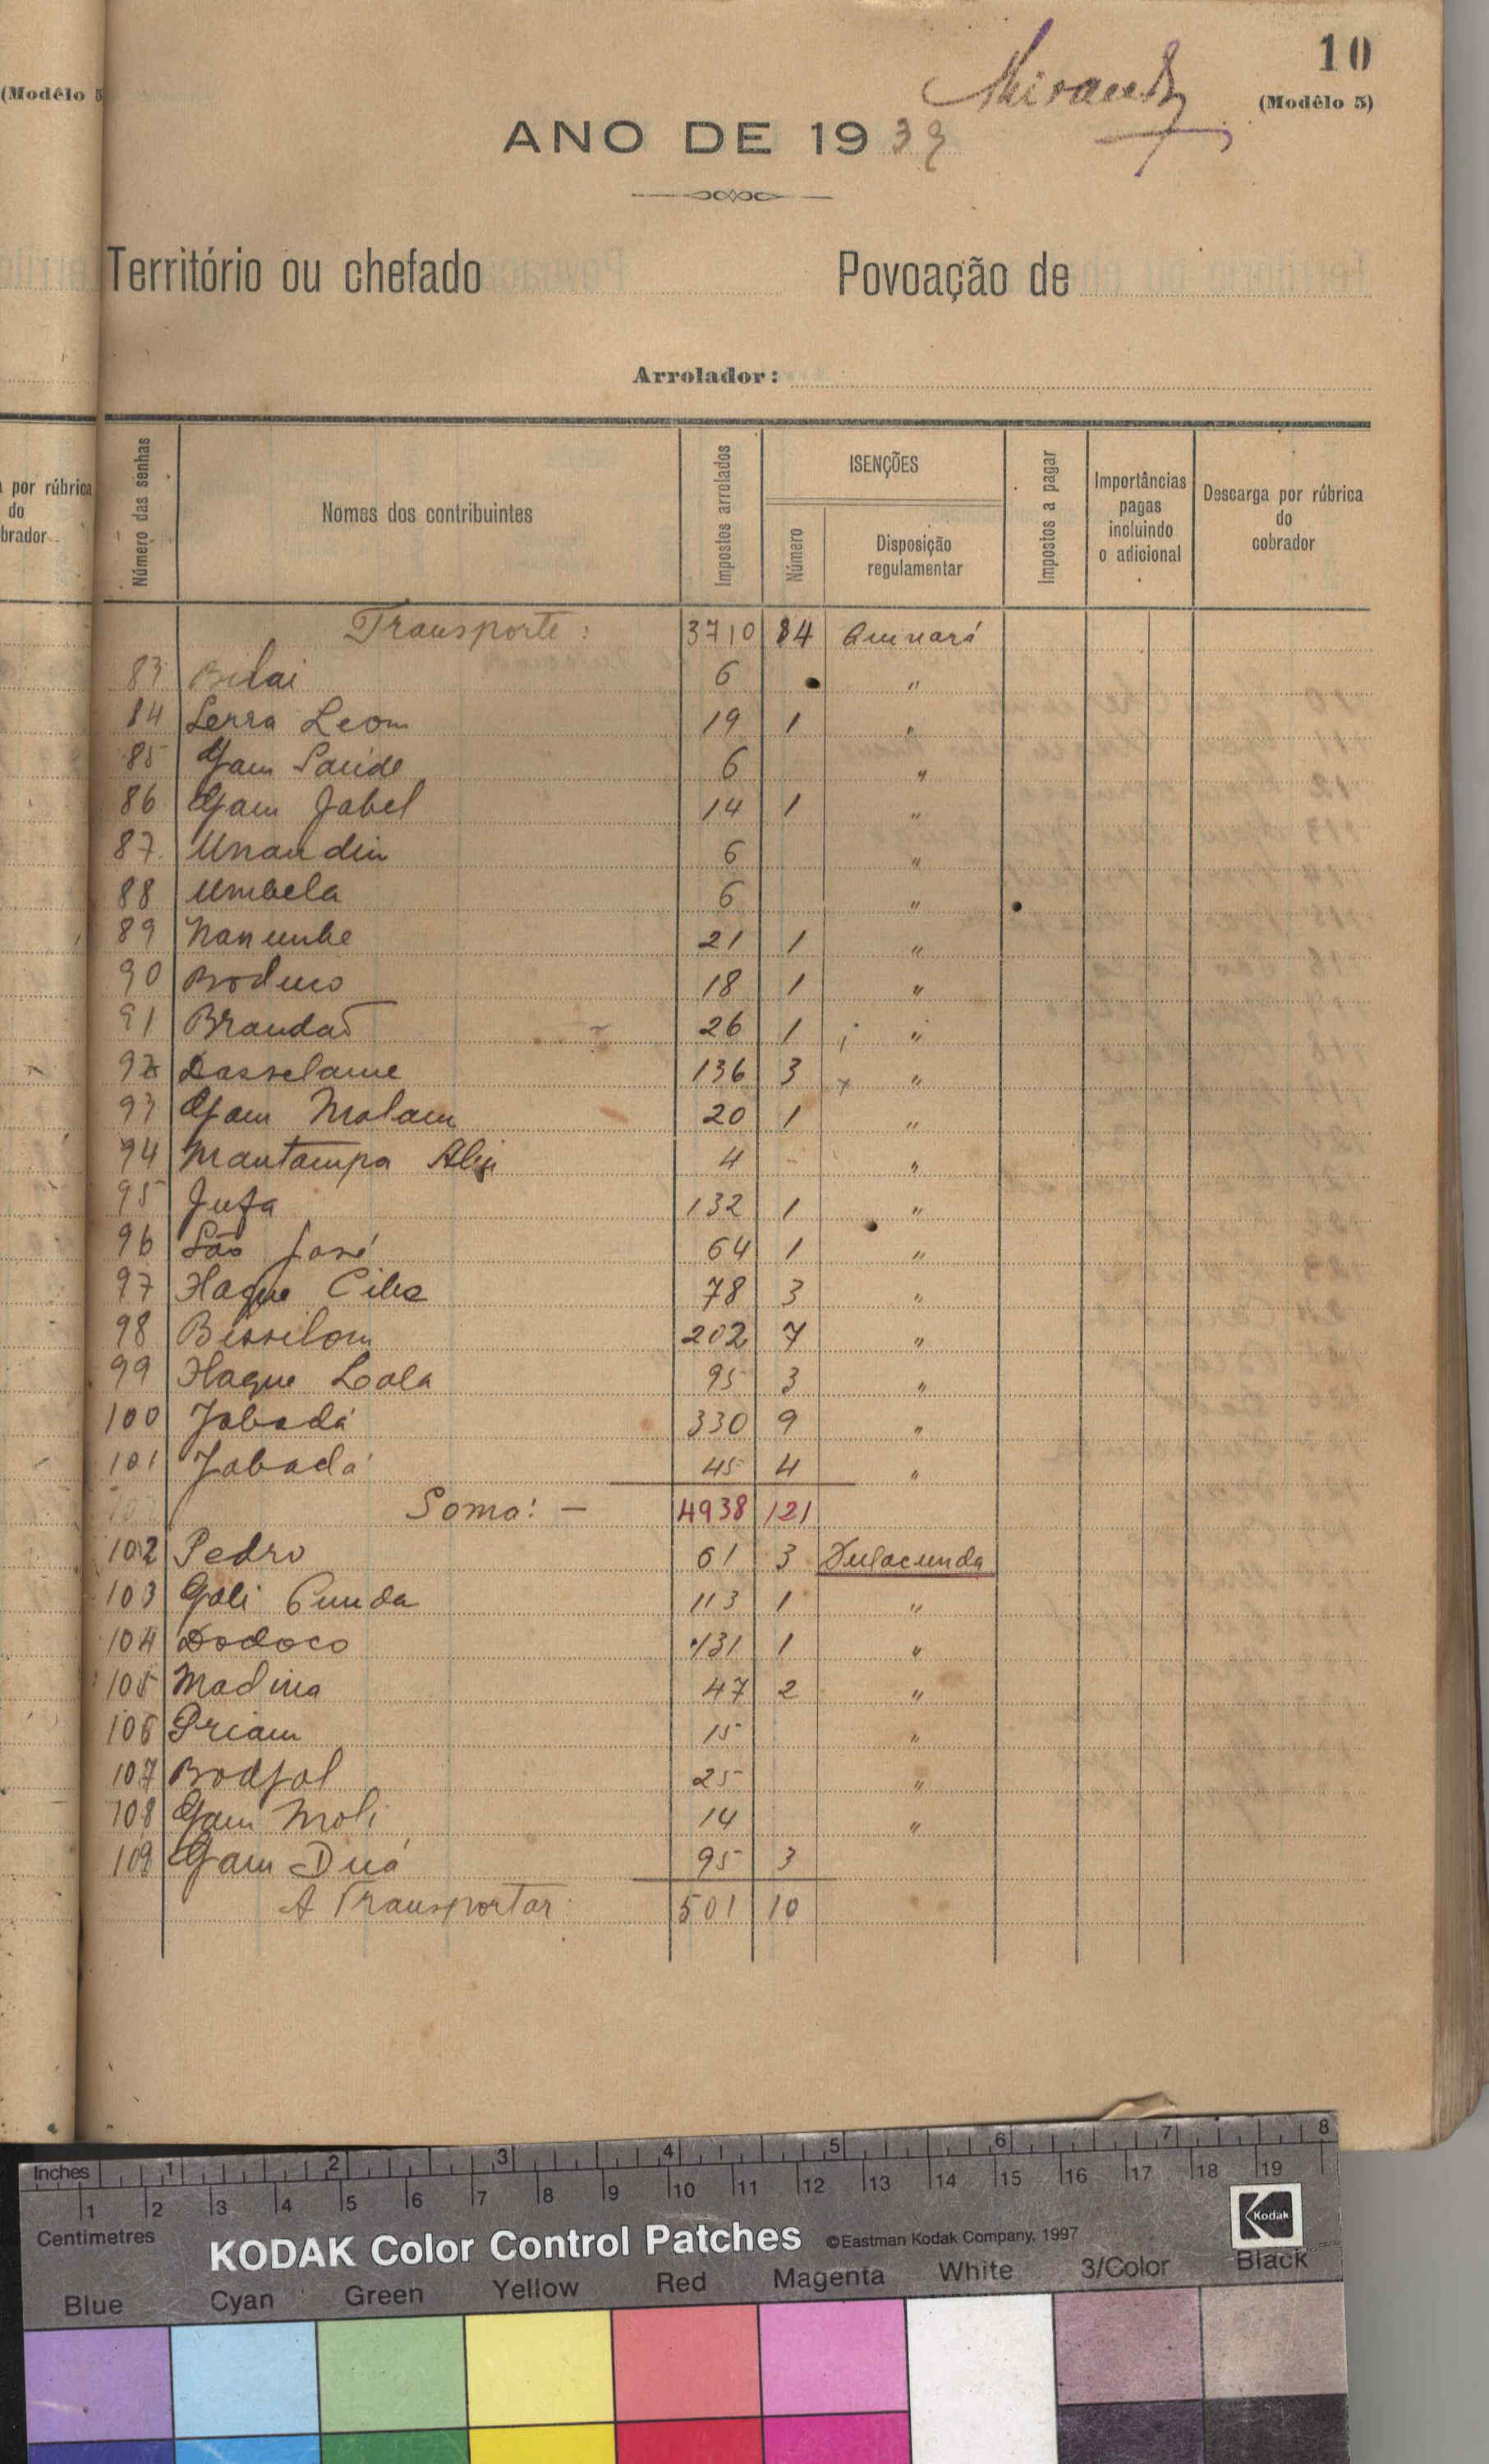 10
(Modêlo 5)
ANO DE 1939
Território ou chefado
Povoação de
Arrolador:
Número das senhas
Nomes dos contribuintes
Impostos arrolados
ISENÇÕES
Número
Disposição regulamentar
Impostos a pagar
Importâncias pagas incluindo o adicional
Descarga por rúbrica do cobrador
Transporte: 3710 84 Quinará
83 Belai 6 "
84 Serra Leom 19 1 "
85 Gam Saúde 6 "
86 Gam Jabel 14 1 "
87 Unaudin 6 "
88 Umbela 6 "
89 Nanumhe 21 1 "
90 18 1 "
91 Brandão 26 1 "
92 Dasselame 136 3 "
93 Gam Malam 20 1 "
94 Mantampa 4 "
95 Jufa 132 1 "
96 São José 64 1 "
97 Flaque Cibe 78 3 "
98 Bissilom 202 7 "
99 Flaque Lala 95 3 "
100 Jabadá 330 9 "
101 Jabadá 45 4 "
Soma: — 4938 121
102 Pedro 61 3 Fulacunda
103 Gali Cunda 113 1 "
104 Dodoco 131 1 "
105 Madina 47 2 "
106 Priam 15 "
107 Bodjol 25 "
108 Gam Moli 14 "
109 Gam Duá 95 3
A Transportar: 501 10
(Modêlo 5
por rúbrica
do
brador
Inches 1 2 3 4 5 6 7 8
1 2 3 4 5 6 7 8 9 10 11 12 13 14 15 16 17 18 19
Centimetres
KODAK Color Control Patches ©Eastman Kodak Company, 1997 Kodak
Blue Cyan Green Yellow Red Magenta White 3/Color Black